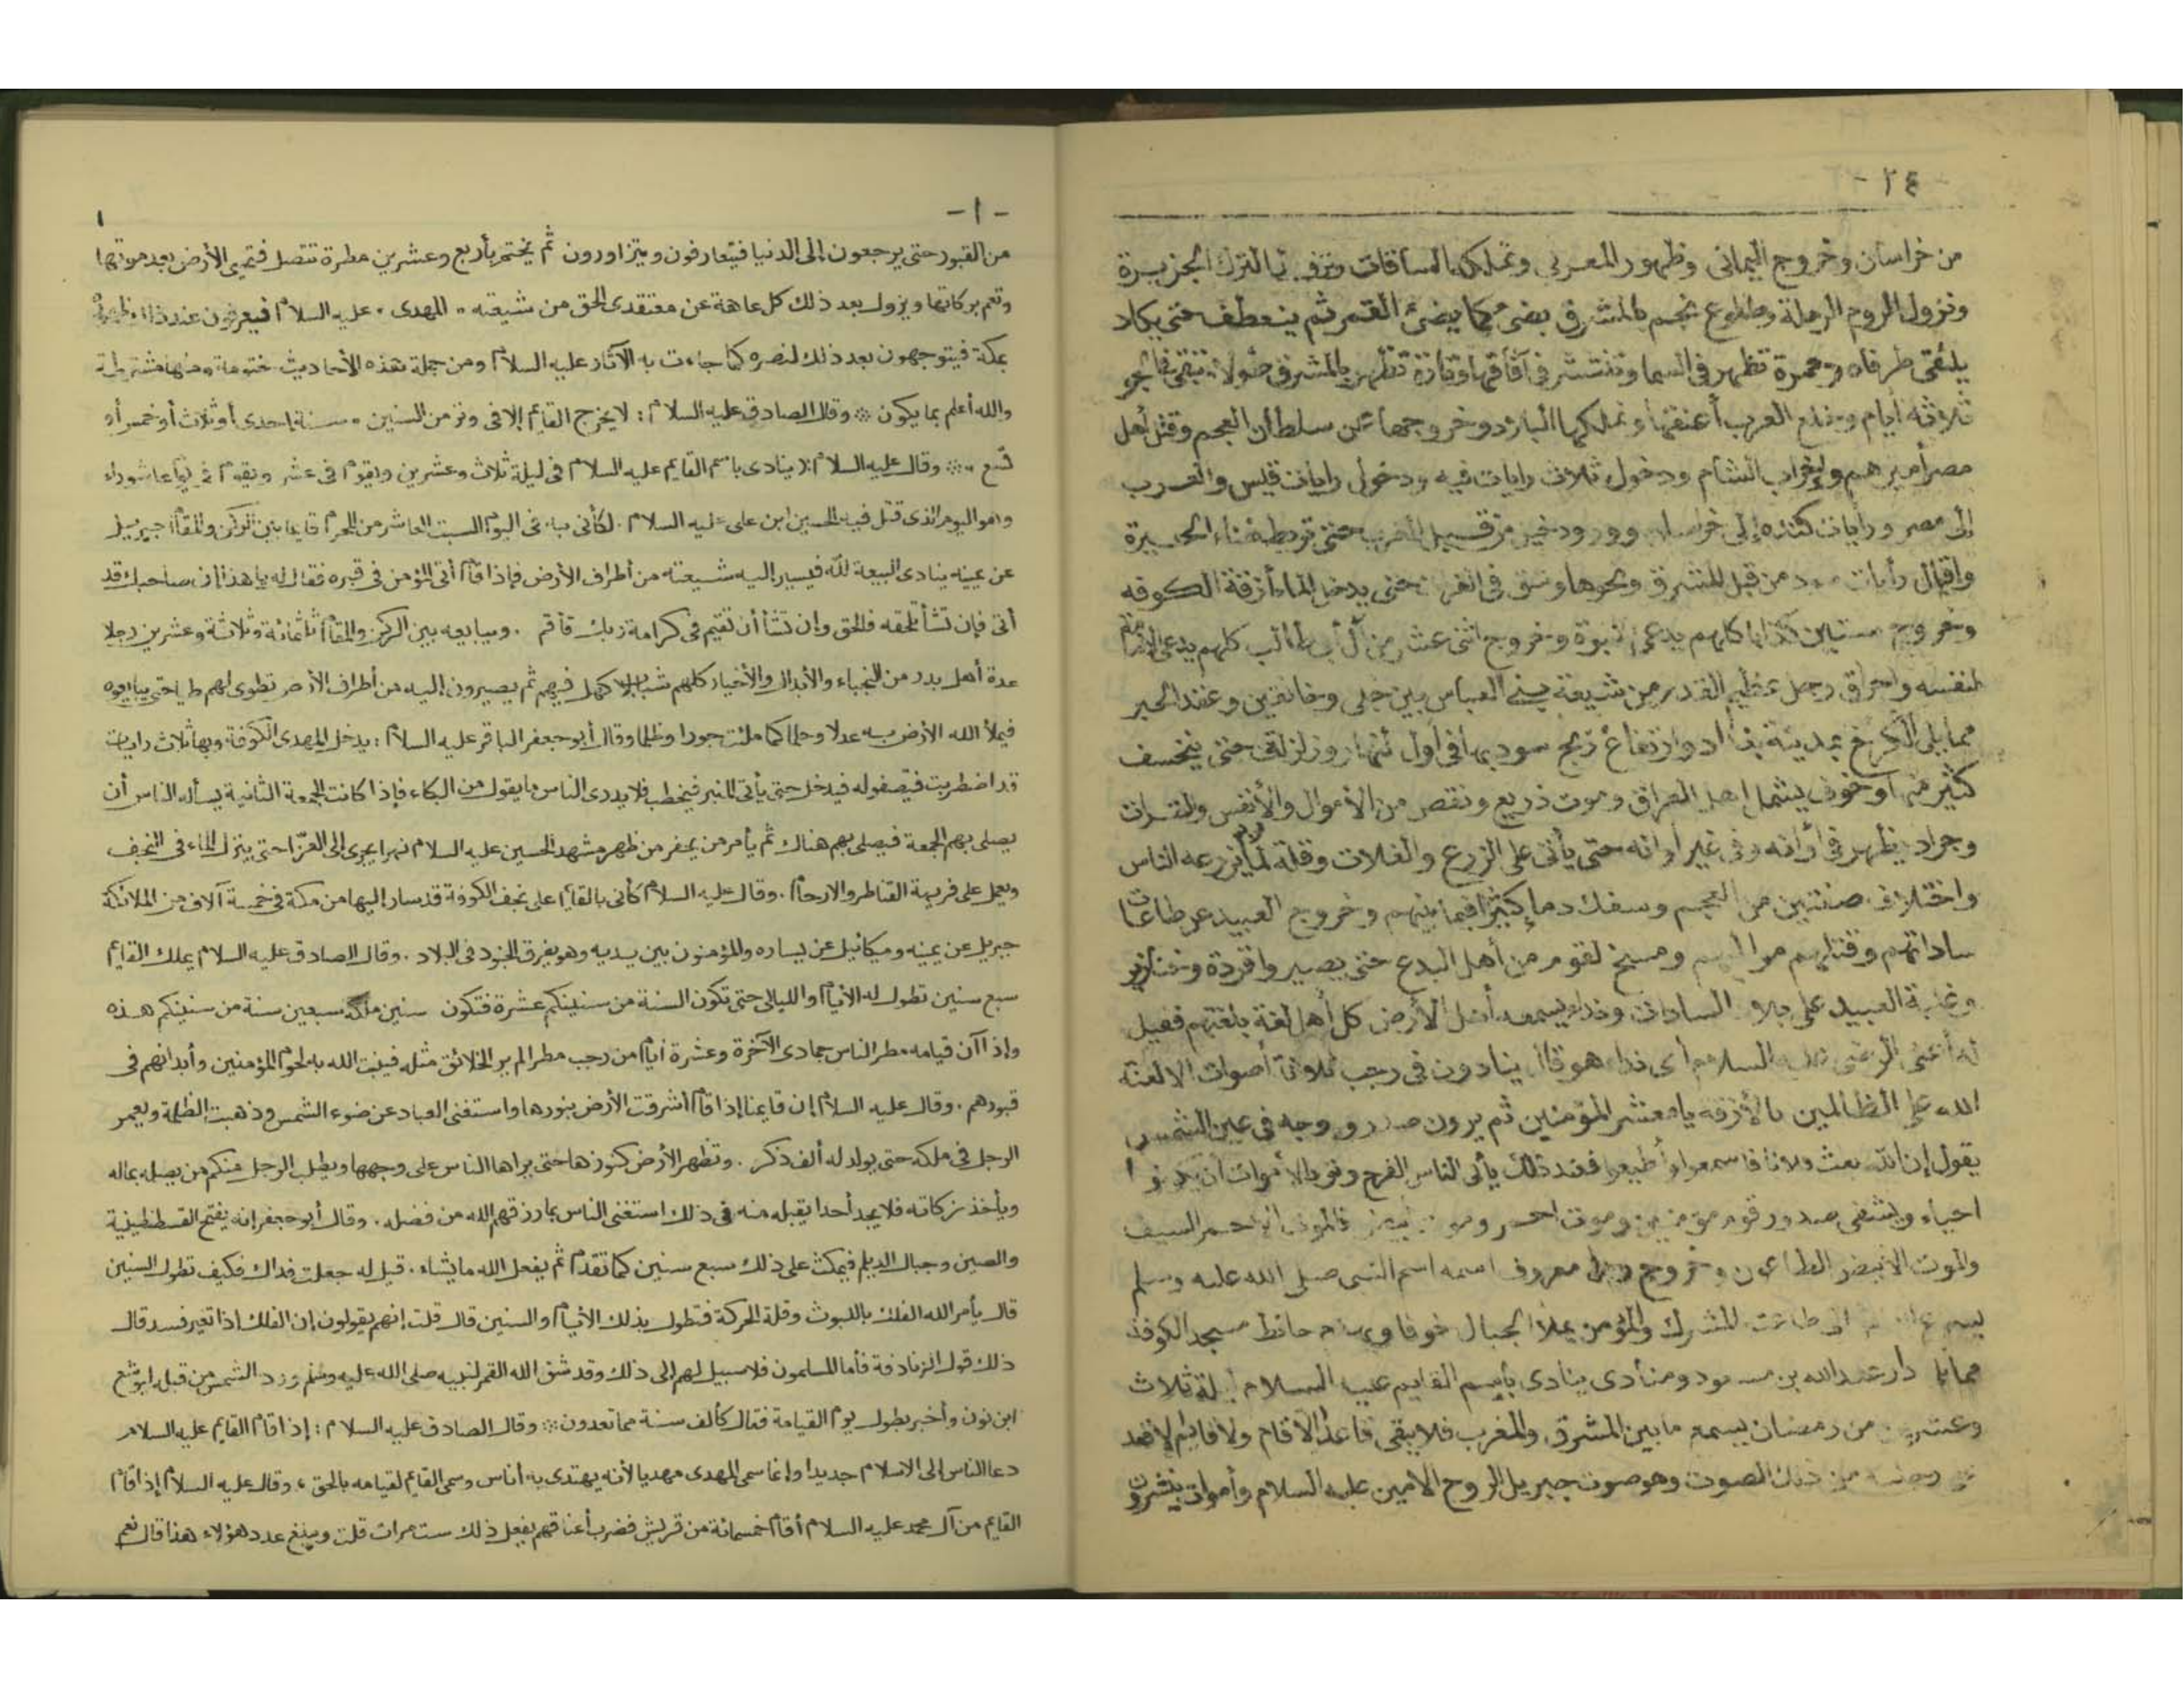 - ٢٤ -
من خراسان وخروج اليماني وظهور المغربي وتملكه الشاقات ونزول الترك الجزيرة
ونزول الروم الرملة وطلوع نجم بالمشرق يضئ كما يضئ القمر ثم ينعطف حتى يكاد
يلتقى طرفاه وحمرة تظهر في السما وتنتشر في آفاقها ونار تظهر بالمشرق طولا تبقى في الجو
ثلاثة أيام وخلع العرب أعنتها وتملكها البلاد وخروجها عن سلطان العجم وقتل أهل
مصر أميرهم وخراب الشام ودخول ثلاث رايات فيه ودخول رايات قيس والعرب
إلى مصر ورايات كنده إلى خراسان وورود خيل من قبل المغرب حتى تربط بفناء الحيرة
واقبال رايات سود من قبل المشرق ونحوها وشق في الفرات حتى يدخل الماء أزقة الكوفه
وخروج ستين كذابا كلهم يدعى النبوة وخروج اثنى عشر من آل أبى طالب كلهم يدعى الإمامة
لنفسه واحراق رجل عظيم القدر من شيعة بنى العباس بين جلى وخانقين وعقد الجسر
مما يلى الكرخ بمدينة بغداد وارتفاع ريح سود بها في أول النهار وزلزلة حتى ينخسف
كثير منها وخوف يشمل اهل العراق وموت ذريع ونقص من الأموال والأنفس والثمرات
وجراد يظهر في أوانه وفى غير أوانه حتى يأتى على الزرع والغلات وقلة لما يزرعه الناس
واختلاف صنفين من العجم وسفك دما كثيرا فيما بينهم وخروج العبيد عن طاعات
ساداتهم وقتلهم مواليهم ومسخ لقوم من أهل البدع حتى يصيروا قردة وخنازير
وغلبة العبيد على بلاد السادات ونداء يسمعه أهل الأرض كل أهل لغة بلغتهم فقيل
السلام أى نداء هو قال ينادون في رجب ثلاثة أصوات الا لعنة
الله على الظالمين بالأزفه يا معشر المؤمنين ثم يرون صدر ووجه في عين الشمس
يقول إن الله بعث فلانا فاسمعوا وأطيعوا فعند ذلك يأتى الناس الفرج وتود الأموات أن يكونوا
احياء ويشفى صدور قوم مؤمنين وموت احمر وموت ابيض فالموت الاحمر السيف
والموت الأبيض الطاعون وخروج رجل معروف اسمه اسم النبى صلى الله عليه وسلم
المشرك والمؤمن يملأ الجبال خوفا حائط مسجد الكوفة
مما يلى دار عبد الله بن مسعود ومنادى ينادى باسم القايم عليه السلام ليلة ثلاث
وعشرين من رمضان يسمع ما بين المشرق والمغرب فلا يبقى قاعد الا قام ولا قايم الا قعد
من ذلك الصوت وهو صوت جبريل الروح الأمين عليه السلام وأموات ينشرون
- ١ -
١
من القبور حتى يرجعون إلى الدنيا فيتعارفون ويتزاورون ثم يختم بأربع وعشرين مطرة تتصل فتحيى الأرض بعد موتها
وتعم بركاتها ويزول بعد ذلك كل عاهة عن معتقدى الحق من شيعته " المهدى " عليه السلام فيعرفون عند ذلك ظهوره
بمكة فيتوجهون بعد ذلك لنصره كما جاءت به الآثار عليه السلام ومن جملة هذه الأحاديث محتومة ومنها مشترطة
والله أعلم بما يكون ※ وقال الصادق عليه السلام : لا يخرج القايم إلا في وتر من السنين " سنة إحدى أو ثلاث أو خمس أو
تسع " ※ وقال عليه السلام : ينادى باسم القايم عليه السلام في ليلة ثلاث وعشرين ويقوم في يوم عاشوراء
وهو اليوم الذى قتل فيه الحسين ابن على عليه السلام . لكأني به في اليوم السبت العاشر من المحرم قايما بين الركن والمقام جبريل
عن يمينه ينادى البيعة لله فيسير اليه شيعته من أطراف الأرض فإذا قام أتى المؤمن في قبره فقال له يا هذا إن صاحبك قد
أتى فإن تشأ تلحقه فالحق وإن تشأ أن تقيم في كرامة ربك فأقم . ويبايعه بين الركن والمقام ثلثمائة وثلاثة وعشرين رجلا
عدة أهل بدر من النجباء والأبدال والأخيار كلهم شباب لا كهل فيهم ثم يصيرون إليه من أطراف الأرض تطوى لهم طيا حتى يبايعوه
فيملأ الله الأرض به عدلا وحلما كما ملئت جورا وظلما وقال أبو جعفر الباقر عليه السلام : يدخل المهدى الكوفة وبها ثلاث رايات
قد اضطربت فيصفو له فيدخل حتى يأتى المنبر فيخطب فلا يدرى الناس ما يقول من البكاء فإذا كانت الجمعة الثانية يسأله الناس أن
يصلى بهم الجمعة فيصلى بهم هناك ثم يأمر من يحفر من ظهر مشهد الحسين عليه السلام نهرا يجرى إلى الغرا حتى ينزل الماء في النجف
ويعمل على فريهة القناطر والارحاء . وقال عليه السلام كأنى بالقايم على نجف الكوفة قد سار اليها من مكة في خمسة آلاف من الملائكة
جبريل عن يمينه وميكائيل عن يساره والمؤمنون بين يديه وهو يفرق الجنود في البلاد . وقال الصادق عليه السلام يملك القايم
سبع سنين تطول له الأيام والليالى حتى تكون السنة من سنينكم عشرة فتكون سنين ملكه سبعين سنة من سنينكم هذه
وإذا آن قيامه مطر الناس جمادى الآخرة وعشرة أيام من رجب مطرا لم ير الخلائق مثله فينبت الله به لحوم المؤمنين وأبدانهم في
قبورهم . وقال عليه السلام إن قايمنا إذا قام أشرقت الأرض بنورها واستغنى العباد عن ضوء الشمس وذهبت الظلمة ويعمر
الرجل في ملكه حتى يولد له ألف ذكر . وتظهر الأرض كنوزها حتى يراها الناس على وجهها ويطلب الرجل منكم من يصله بماله
ويأخذ زكاته فلا يجد أحدا يقبله منه في ذلك استغنى الناس بما رزقهم الله من فضله . وقال أبو جعفر إنه يفتح القسطنطينية
والصين وجبال الديلم فيمكث على ذلك سبع سنين كما تقدم ثم يفعل الله ما يشاء . قيل له جعلت فداك فكيف تطول السنين
قال يأمر الله الفلك باللبوث وقلة الحركة فتطول بذلك الأيام والسنين قال قلت إنهم يقولون إن الفلك اذا تغير فسد قال
ذلك قول الزنادقة فأما المسلمون فلا سبيل لهم إلى ذلك وقد شق الله القمر لنبيه صلى الله عليه وسلم ورد الشمس من قبله ليوشع
ابن نون وأخبر بطول يوم القيامة فقال كألف سنة مما تعدون ※ وقال الصادق عليه السلام : إذا قام القايم عليه السلام
دعا الناس إلى الاسلام جديدا وإنما سمى المهدى مهديا لأنه يهتدى به أناس وسمى القايم لقيامه بالحق ، وقال عليه السلام إذا قام
القايم من آل محمد عليه السلام أقام خمسمائة من قريش فضرب أعناقهم يفعل ذلك ست مرات قلت ويبلغ عدد هؤلاء هذا قال نعم